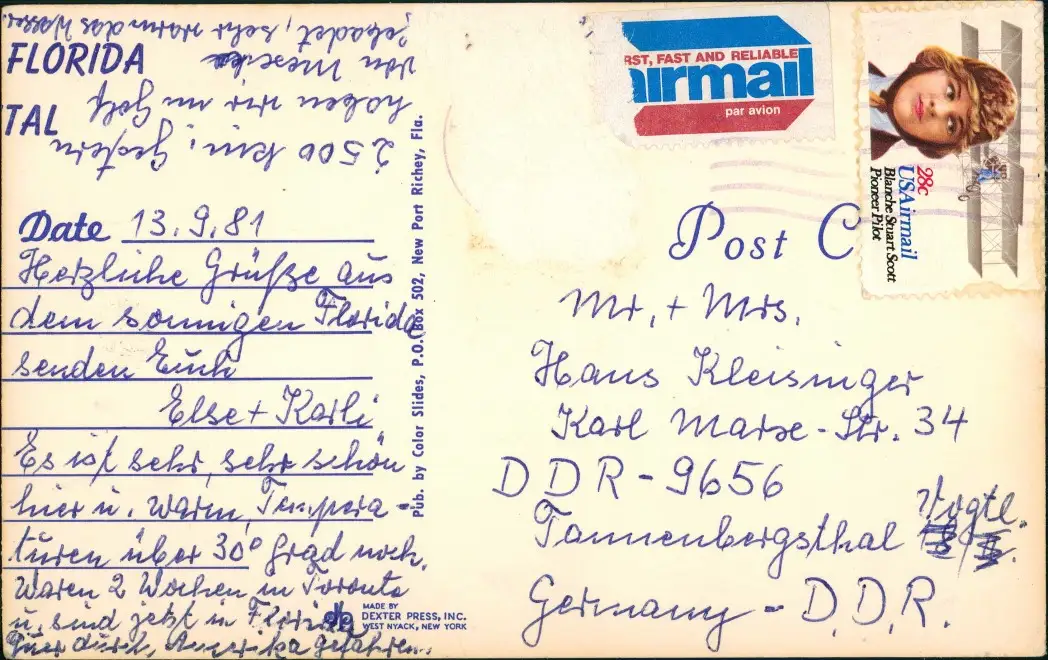 FLORIDA
TAL
Date 13.9.81
Herzliche Grüße aus
dem sonnigen Florida
senden Euch
Else + Karli
Es ist sehr, sehr schön
hier u. warm, Tempera-
turen über 30° Grad noch.
Waren 2 Wochen in Toronto
u. sind jetzt in Florida
Quer durch, Amerika gefahren.
2 500 km; Gestern
haben wir im Golf
von Mexiko
gebadet, sehr warm das Wasser.
Pub. by Color Slides, P.O. Box 502, New Port Richey, Fla.
MADE BY
DEXTER PRESS, INC.
WEST NYACK, NEW YORK
RST, FAST AND RELIABLE
airmail
par avion
28c
USAirmail
Blanche Stuart Scott
Pioneer Pilot
Post C
Mr. + Mrs.
Hans Kleisinger
Karl Marx-Str. 34
DDR-9656
Tannenbergsthal Vogtl.
Germany - D.D.R.